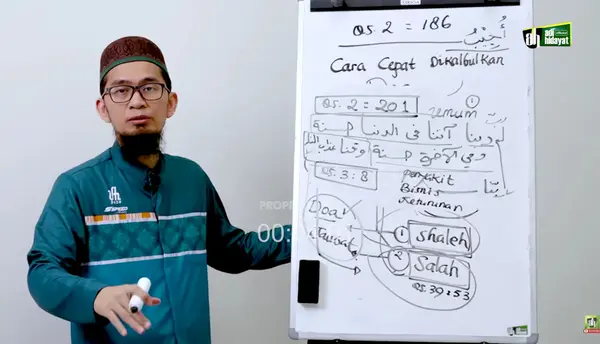 QS. 2 = 186
أُجِيْبُ
Cara Cepat Dikabulkan
QS. 2 = 201
umum
1
ربنا آتنا في الدنيا حسنة
وفي الآخرة حسنة وقنا عذاب النار
QS. 3 : 8
ربنا
Penyakit
Bisnis
Keturunan
Doa
Taubat
1 shaleh
2 Salah
QS. 39 : 53
adi hidayat
SPEED
00: